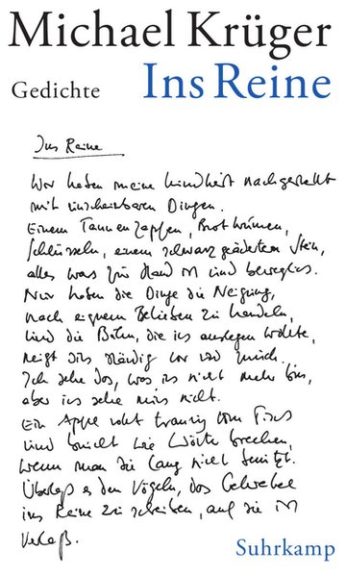 Michael Krüger
Gedichte Ins Reine
Ins Reine
Wir haben meine Kindheit nachgestellt
mit unscheinbaren Dingen.
Einem Tannenzapfen, Brotkrumen,
Schlüsseln, einem schwarz geäderten Stein,
alles was zur Hand ist und beweglich.
Nur haben die Dinge die Neigung,
nach eignem Belieben zu handeln,
und die Bühne, die ich auslegen wollte,
neigt sich ständig vor und zurück.
Ich sehe das, was ich nicht mehr bin,
aber ich sehe mich nicht.
Ein Apfel rollt traurig vom Tisch
und bricht wie Wörter brechen,
wenn man sie lang nicht benützt.
Überlaß es den Vögeln, das Gekrakel
ins Reine zu schreiben, auf die ist
Verlaß.
Suhrkamp